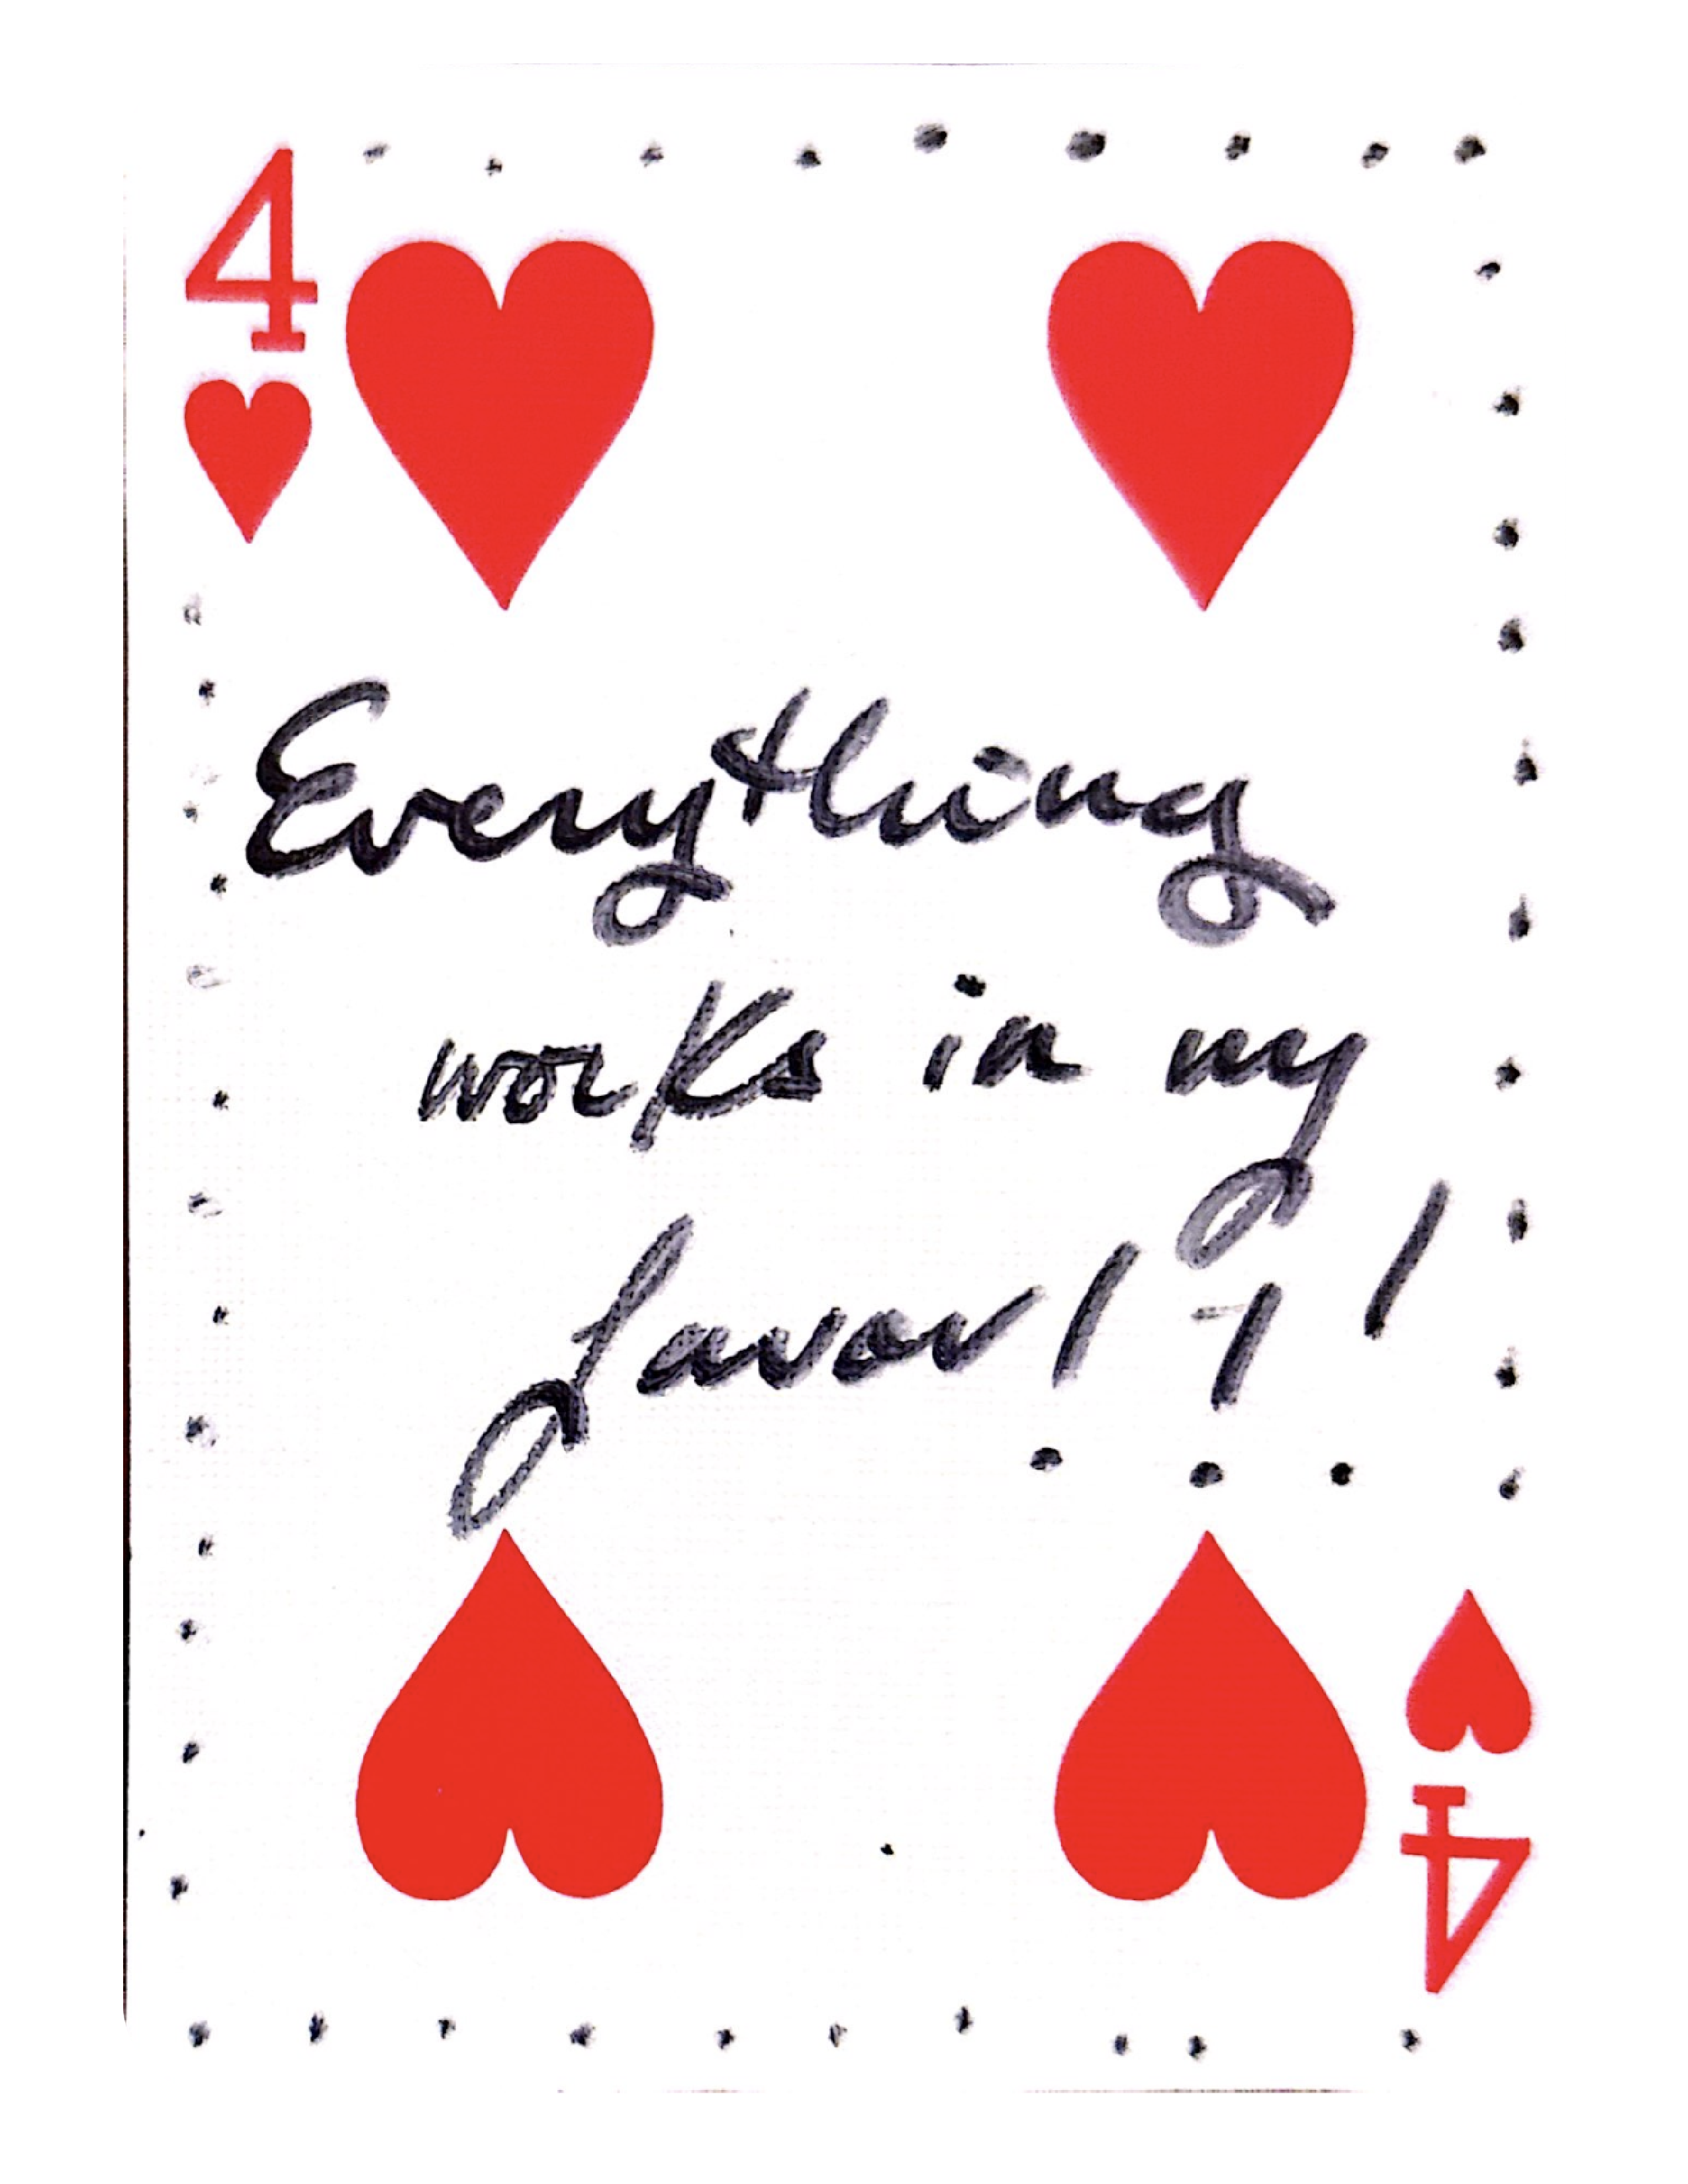 4
Everything
works in my
favor!!!
4